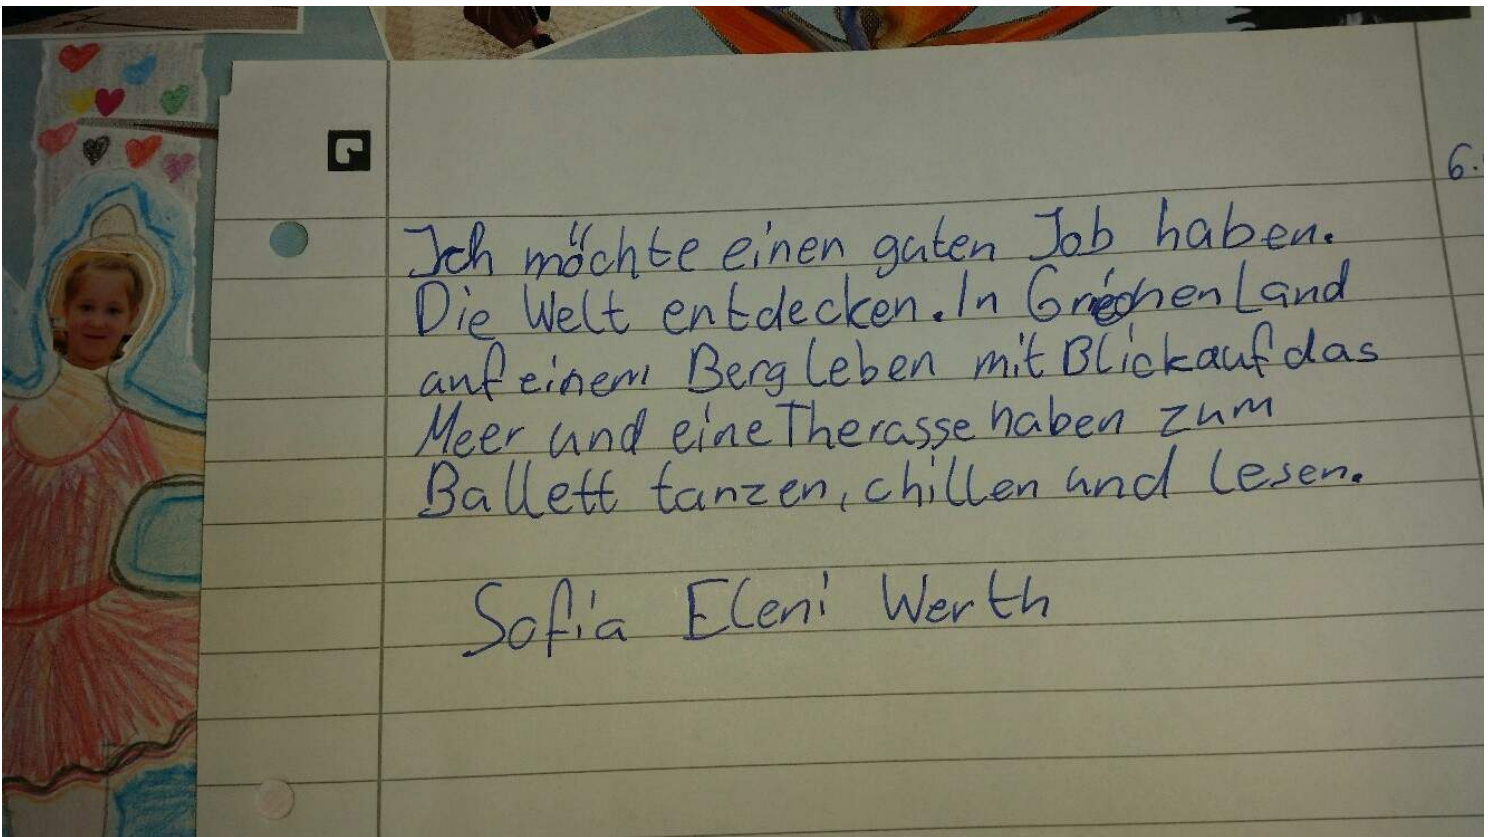 6.
Ich möchte einen guten Job haben.
Die Welt entdecken. In Griechenland
auf einem Berg leben mit Blick auf das
Meer und eine Therasse haben zum
Ballett tanzen, chillen und lesen.
Sofia Eleni Werth